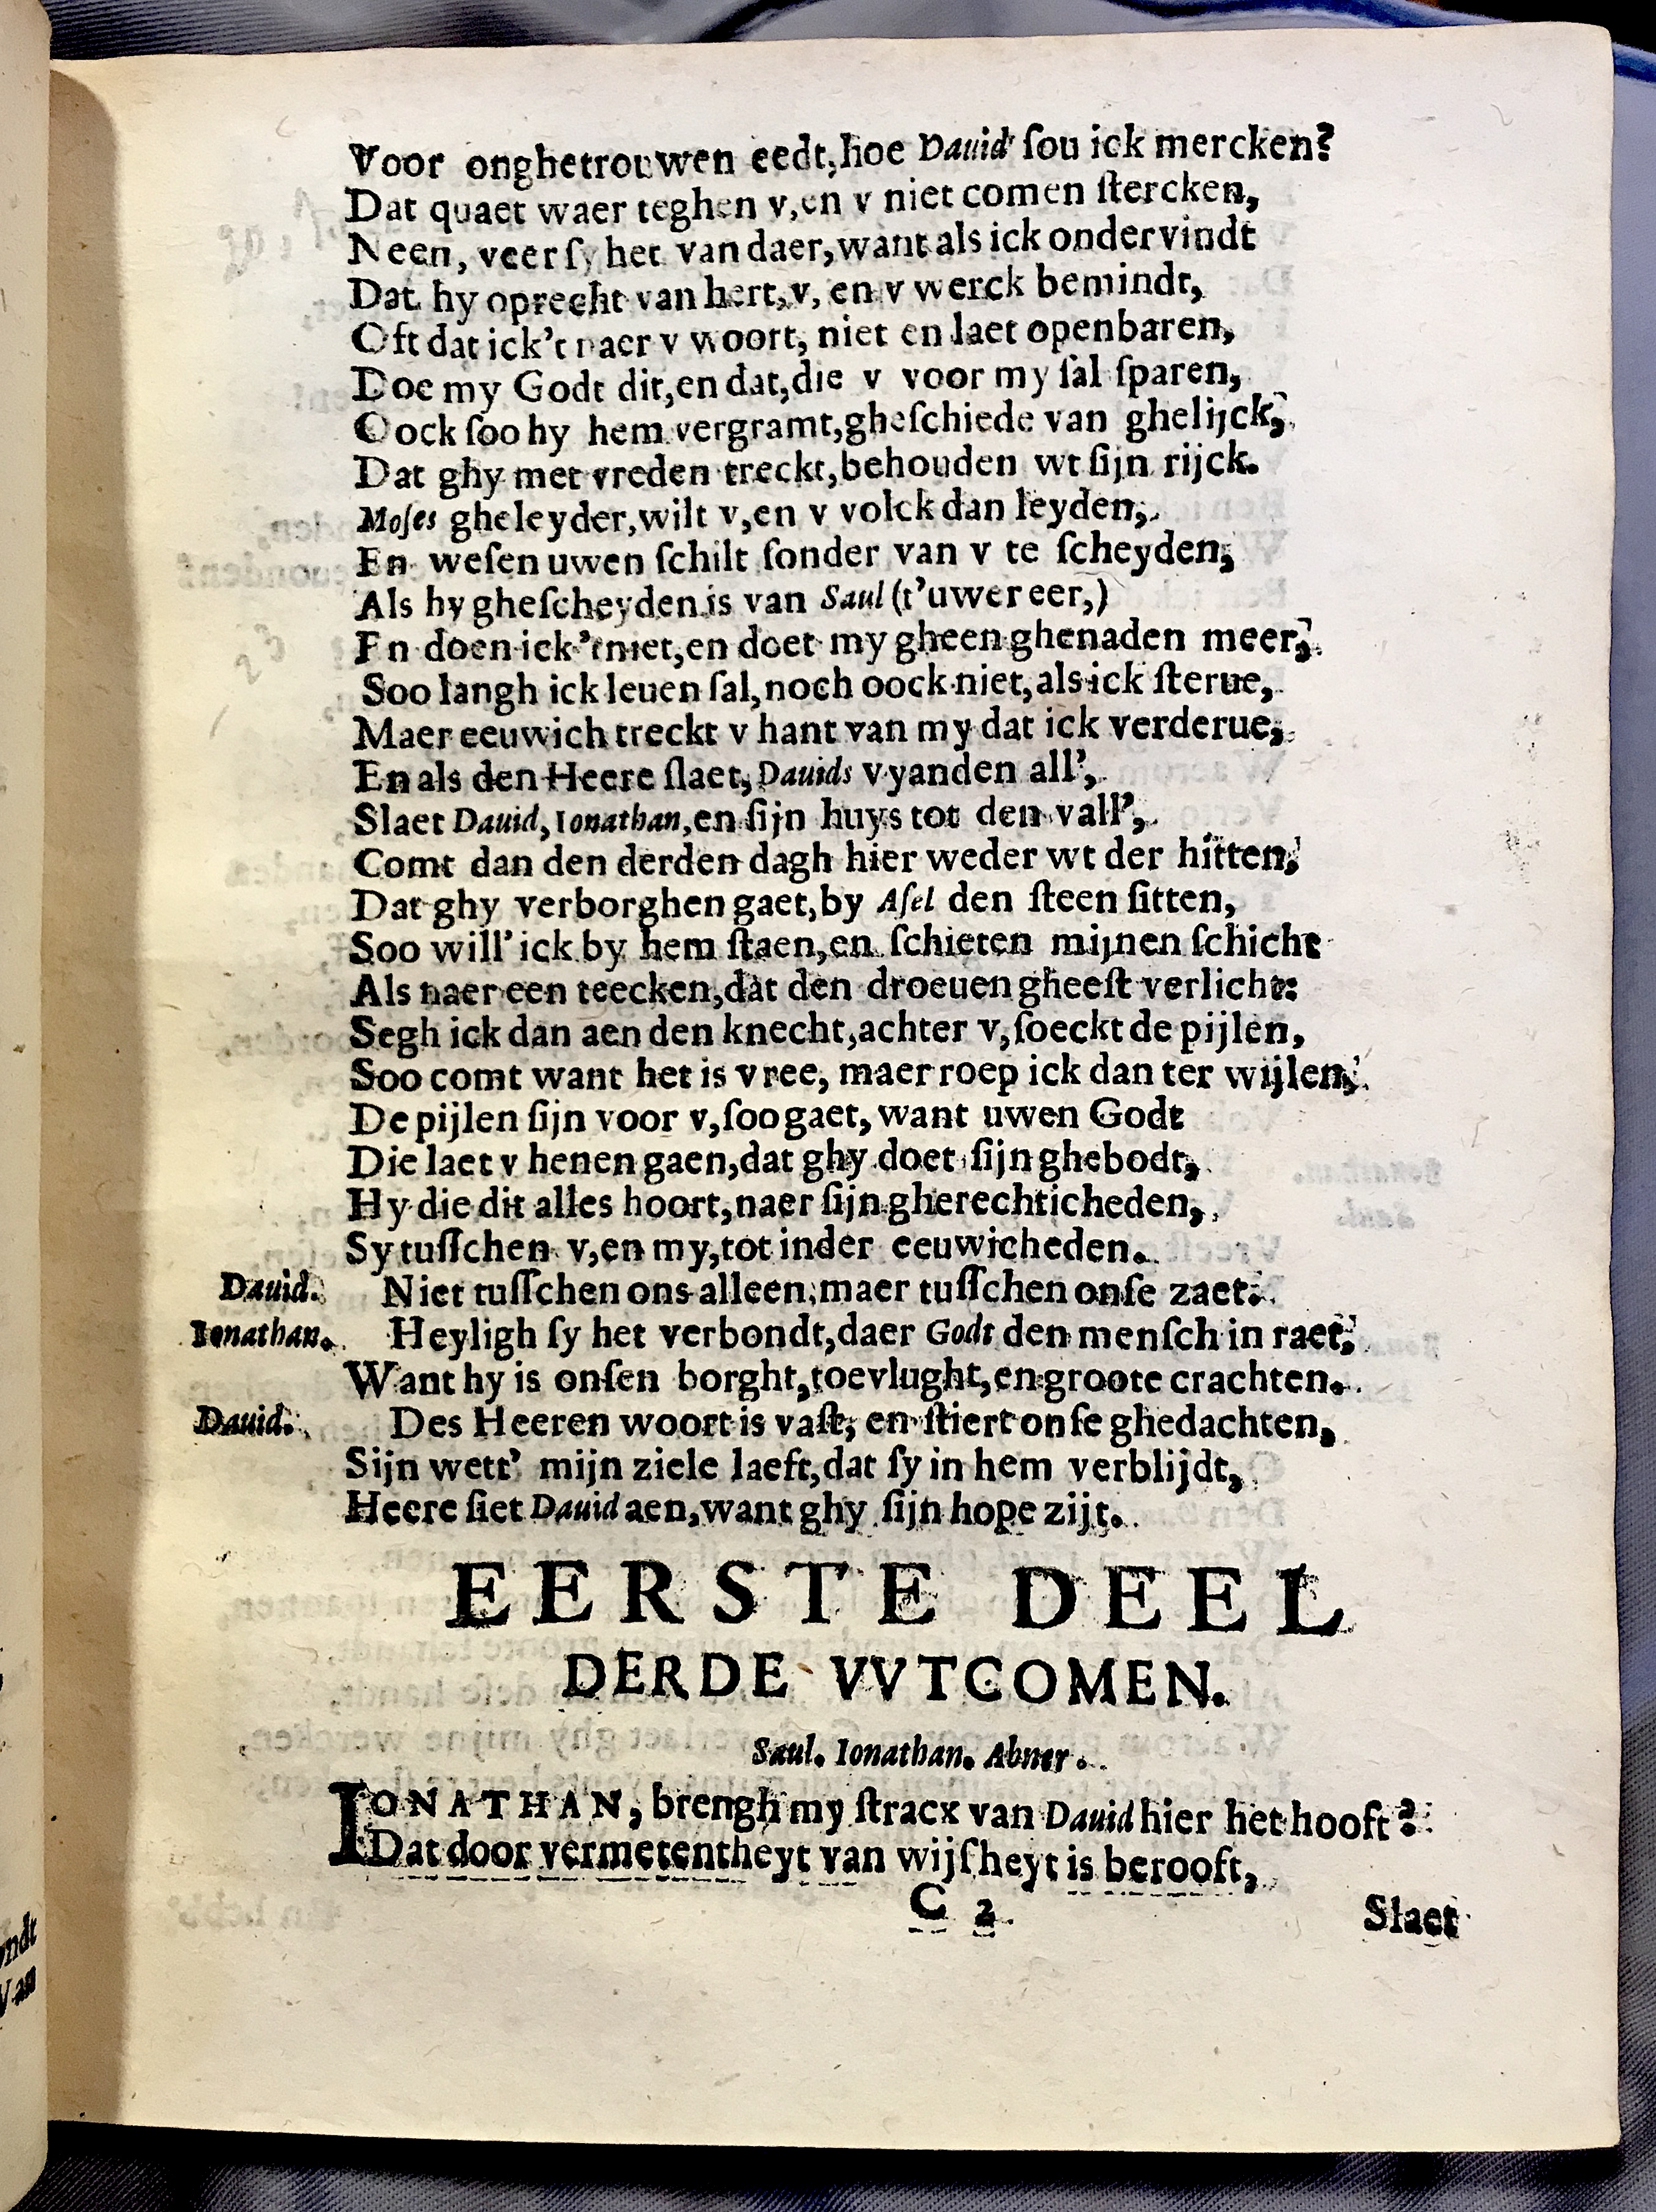 Voor onghetrouwen eedt, hoe Dauid sou ick mercken?
Dat quaet waer teghen v, en v niet comen stercken,
Neen, veer sy het van daer, want als ick ondervindt
Dat hy oprecht van hert, v, en v werck bemindt,
Oft dat ick't naer v woort, niet en laet openbaren,
Doe my Godt dit, en dat, die v voor my sal sparen,
Oock soo hy hem vergramt, gheschiede van ghelijck,
Dat ghy met vreden treckt, behouden wt sijn rijck.
Moses gheleyder, wilt v, en v volck dan leyden,
En wesen uwen schilt sonder van v te scheyden,
Als hy ghescheyden is van Saul (t'uwer eer,)
En doen ick't niet, en doet my gheen ghenaden meer,
Soo langh ick leuen sal, noch oock niet, als ick sterue,
Maer eeuwich treckt v hant van my dat ick verderue,
En als den Heere slaet, Dauids vyanden all',
Slaet Dauid, Ionathan, en sijn huys tot den vall',
Comt dan den derden dagh hier weder wt der hitten,
Dat ghy verborghen gaet, by Asel den steen sitten,
Soo will' ick by hem staen, en schieten mijnen schicht
Als naer een teecken, dat den droeuen gheest verlicht:
Segh ick dan aen den knecht, achter v, soeckt de pijlen,
Soo comt want het is vree, maer roep ick dan ter wijlen,
De pijlen sijn voor v, soo gaet, want uwen Godt
Die laet v henen gaen, dat ghy doet sijn ghebodt,
Hy die dit alles hoort, naer sijn gherechticheden,
Sy tusschen v, en my, tot inder eeuwicheden.
Dauid. Niet tusschen ons alleen, maer tusschen onse zaet.
Ionathan. Heyligh sy het verbondt, daer Godt den mensch in raet,
Want hy is onsen borght, toevlught, en groote crachten.
Dauid. Des Heeren woort is vast, en stiert onse ghedachten,
Sijn wett' mijn ziele laeft, dat sy in hem verblijdt,
Heere siet Dauid aen, want ghy sijn hope zijt.
EERSTE DEEL
DERDE VVTCOMEN.
Saul. Ionathan. Abner.
IONATHAN, brengh my stracx van Dauid hier het hooft?
Dat door vermetentheyt van wijsheyt is berooft,
C 2
Slaet